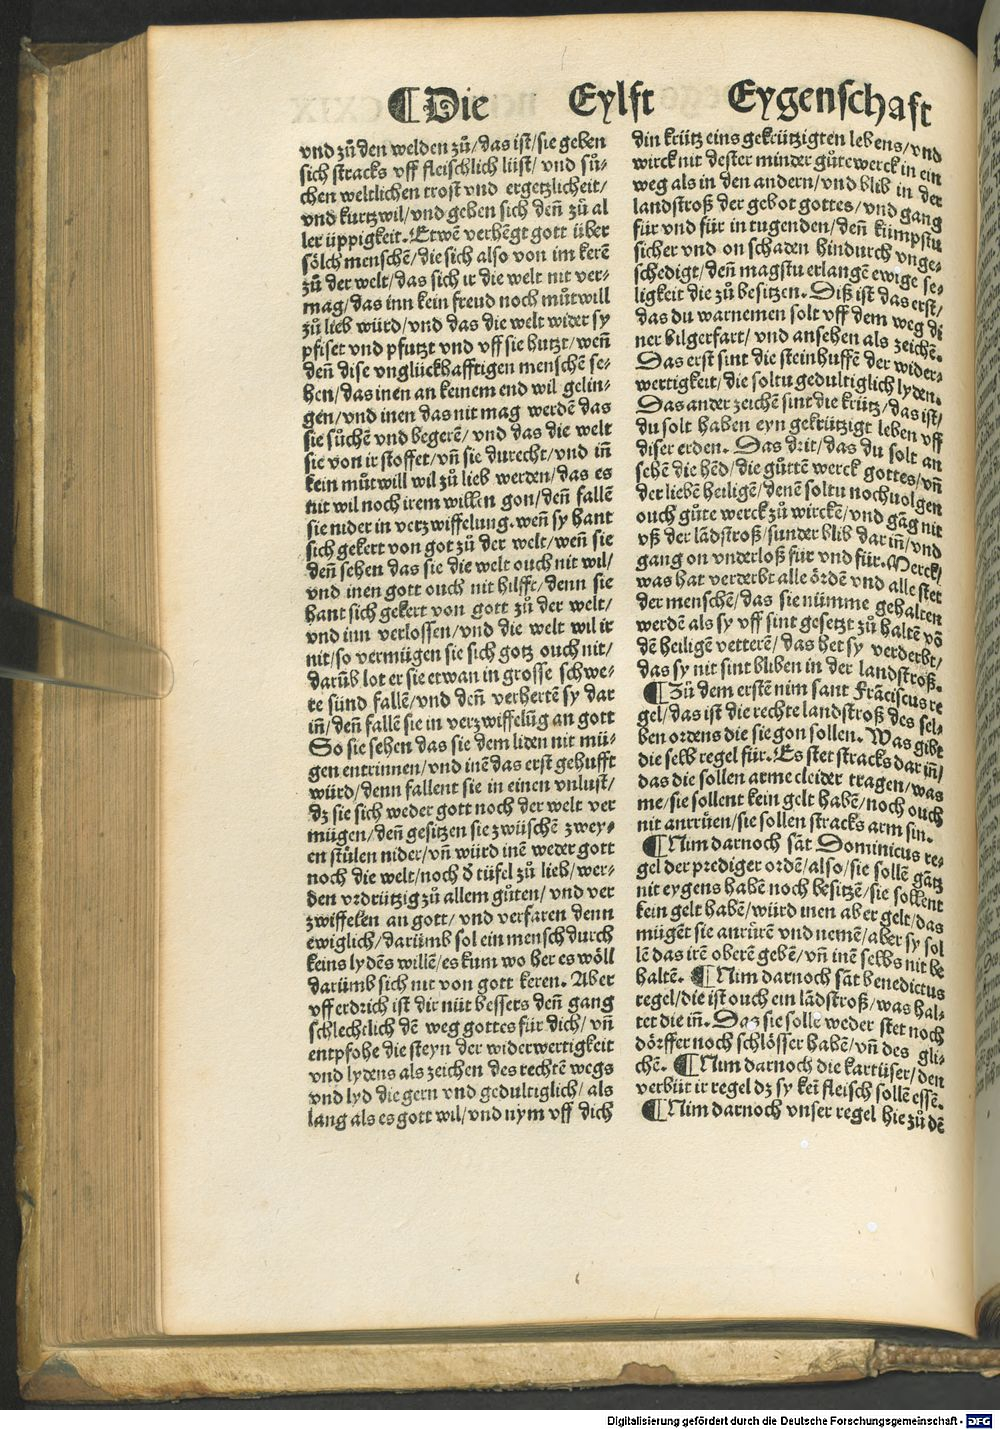 ¶Die Eylft Eygenschaft
vnd zů den welden zů/das ist/sie geben
sich stracks vff fleischlich lüst/ vnd sů-
chen weltlichen trost vnd ergetzlicheit/
vnd kurtzwil/vnd geben sich deñ zů al
ler üppigkeit. Etwẽ verhẽgt gott über
sölch menschẽ/die sich also von im kerẽ
zů der welt/das sich ir die welt nit ver-
mag/das inn kein freud noch můtwill
zů lieb würd/vnd das die welt wider sy
pfiset vnd pfutzt vnd vff sie hutzt/weñ
deñ dise vnglückhafftigen menschẽ se-
hen/das inen an keinem end wil gelin-
gen/vnd inen das nit mag werdẽ das
sie sůchẽn vnd begerẽ/ vnd das die welt
sie von ir stoffet/vñ sie durecht/vnd iñ
kein můtwill wil zů lieb werden/das es
nit wil noch irem willen gon/deñ fallẽ
sie nider in verzwiffelung. weñ sy hant
sich gekert von got zů der welt/weñ sie
deñ sehen das sie die welt ouch nit wil/
vnd inen gott ouch nit hilfft/denn sie
hant sich gekert von gott zů der welt/
vnd inn verlossen/vnd die welt wil ir
nit/so vermügen sie sich gotz ouch nit/
darũb lot er sie etwan in grosse schwe-
re sünd fallẽ/vnd deñ verhertẽ sy dar
iñ/deñ fallẽ sie in verzwiffelũg an gott
So sie sehen das sie dem liden nit mü-
gen entrinnen/vnd inẽ das erst gehufft
würd/denn fallent sie in einen vnlust/
dz sie sich weder gott noch der welt ver
mügen/deñ gesitzen sie zwüschẽ zwey-
en stůlen nider/vñ würd inẽ weder gott
noch die welt/noch d̕ tüfel zů lieb/wer-
den vrdrützig zů allem gůten/ vnd ver
zwiffelen an gott/ vnd verfaren denn
ewiglich/darümb sol ein mensch durch
keins lydẽs willẽ/es kum wo her es wöll
darümb sich nit von gott keren. Aber
vff erdrich ist dir nüt bessers deñ gang
schlechtlich dẽ weg gottes für dich/ vñ
entpfohe die steyn der widerwertigkeit
vnd lydens als zeichen des rechtẽ wegs
vnd lyd die gern vnd gedultiglich/ als
lang als es gott wil/vnd nym vff dich
din krütz eins gekrützigten lebens/vnd
wirck nit dester minder gůte werck in ein
weg als in den andern/vnd blib in der
landstroß der gebot gottes/vnd gang
für vnd für in tugenden/deñ kümpstu
sicher vnd on schaden hindurch vnge-
schedigt/deñ magstu erlangẽ ewige se-
ligkeit die zů besitzen. Diß ist das erst/
das du warnemen solt vff dem weg di
ner bilgerfart/ vnd ansehen als zeichẽ.
Das erst sint die steinhuffẽ der wider-
wertigkeit/die soltu gedultiglich lyden.
Das ander zeichẽ sint die krütz/das ist/
du solt haben eyn gekrützigt leben vff
diser erden. Das drit/das du solt an
sehẽ die hẽd/die gůttẽ werck gottes/vñ
der liebẽ heiligẽ/denẽ soltu nochuolgen
ouch gůte werck zů wirckẽ/vnd gãg nit
vß der lãdstroß/sunder blib dar iñ/vnd
gang on vnderloß für vnd für. Merck/
was hat verderbt alle ördẽ vnd alle stet
der menschẽ/das sie nümme gehalten
werdẽ als sy vff sint gesetzt zů haltẽ võ
dẽ heiligẽ vetterẽ/das het sy verderbt/
das sy nit sint bliben in der landstroß.
¶Zů dem erstẽ nim sant Frãciscus re
gel/das ist die rechte landstroß des sel-
ben ordens die sie gon sollen. Was gibt
die selb regel für. Es stet stracks dar iñ/
das die sollen arme cleider tragen/was
me/sie sollent kein gelt habẽ/noch ouch
nit anrüren/sie sollen stracks arm sin.
¶Nim darnoch sãt Dominicus re-
gel der prediger ordẽ/also/sie sollẽ gãtz
nit eygens habẽ noch besitzẽ/sie sollent
kein gelt habẽ/würd inen aber gelt/das
mügẽt sie anrürẽ vnd nemẽ/aber sy sol
lẽ das irẽ oberẽ gebẽ/vñ inẽ selbs nit be
haltẽ. ¶Nim darnoch sãt benedictus
regel/die ist ouch ein lãdstroß/was hal-
tet die iñ. Das sie sollẽ weder stet noch
dörffer noch schlösser habẽ/vñ des gli-
chẽ. ¶Nim darnoch die kartüser/den
verbüt ir regel dz sy kei͂ fleisch sollẽ essẽ.
¶Nim darnoch vnser regel hie zů dẽ
Digitalisierung gefördert durch die Deutsche Forschungsgemeinschaft - DFG